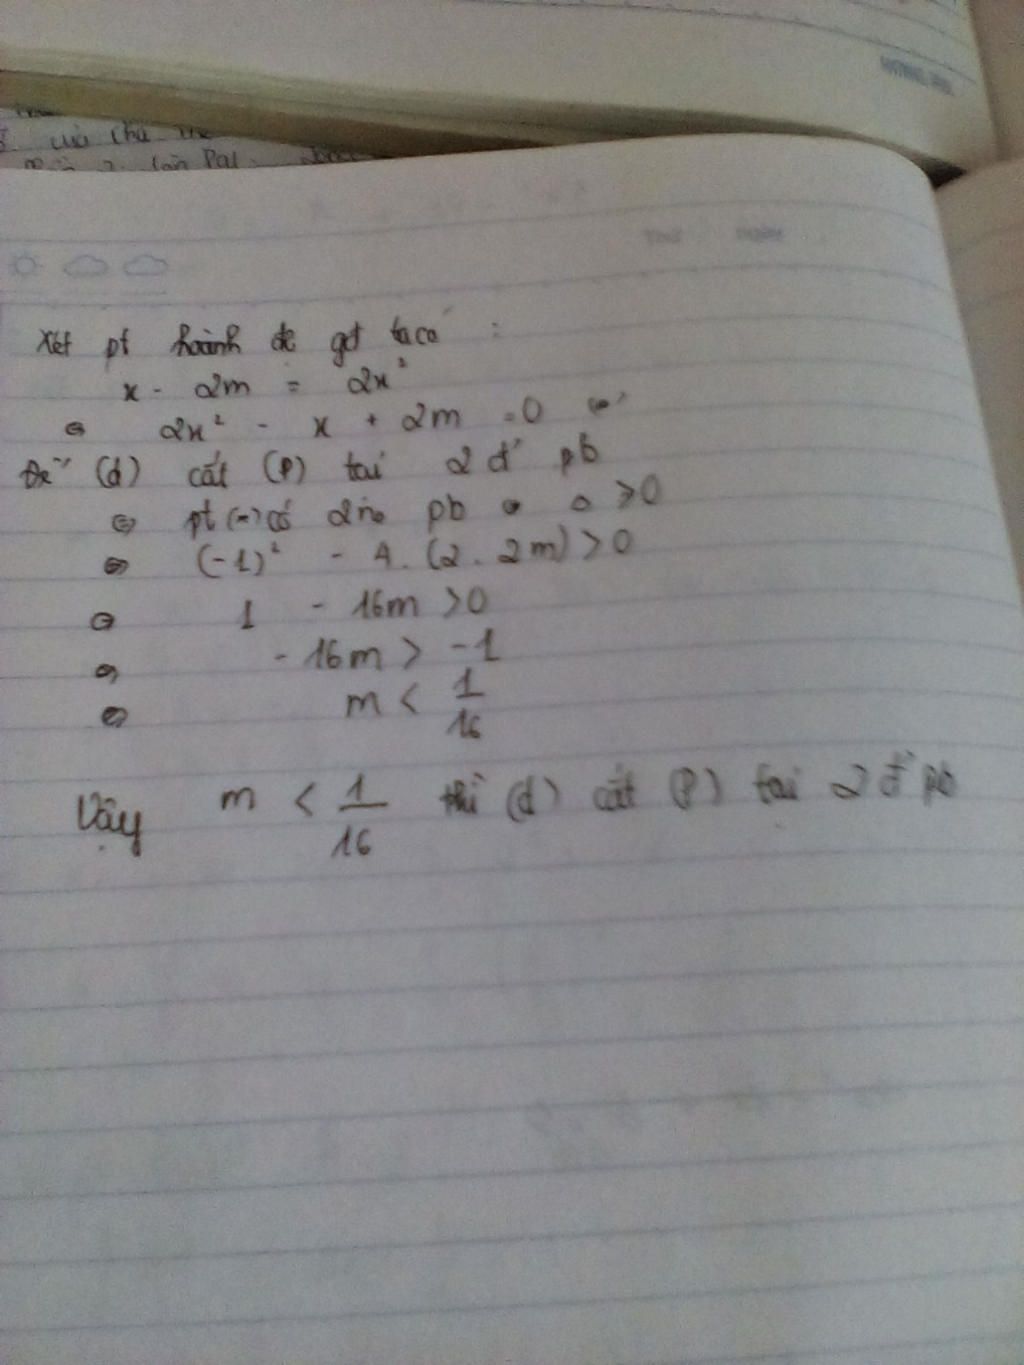 của chú
Thứ ngày
Xét pt hoành độ gđ ta có :
x - 2m = 2x²
⇔ 2x² - x + 2m = 0 (*)
Để (d) cắt (P) tại 2 đ' pb
⇔ pt (*) có 2 n₀ pb ⇔ Δ > 0
⇔ (-1)² - 4. (2. 2m) > 0
⇔ 1 - 16m > 0
⇔ - 16m > -1
⇔ m < 1/16
Vậy m < 1/16 thì (d) cắt (P) tại 2 đ' pb